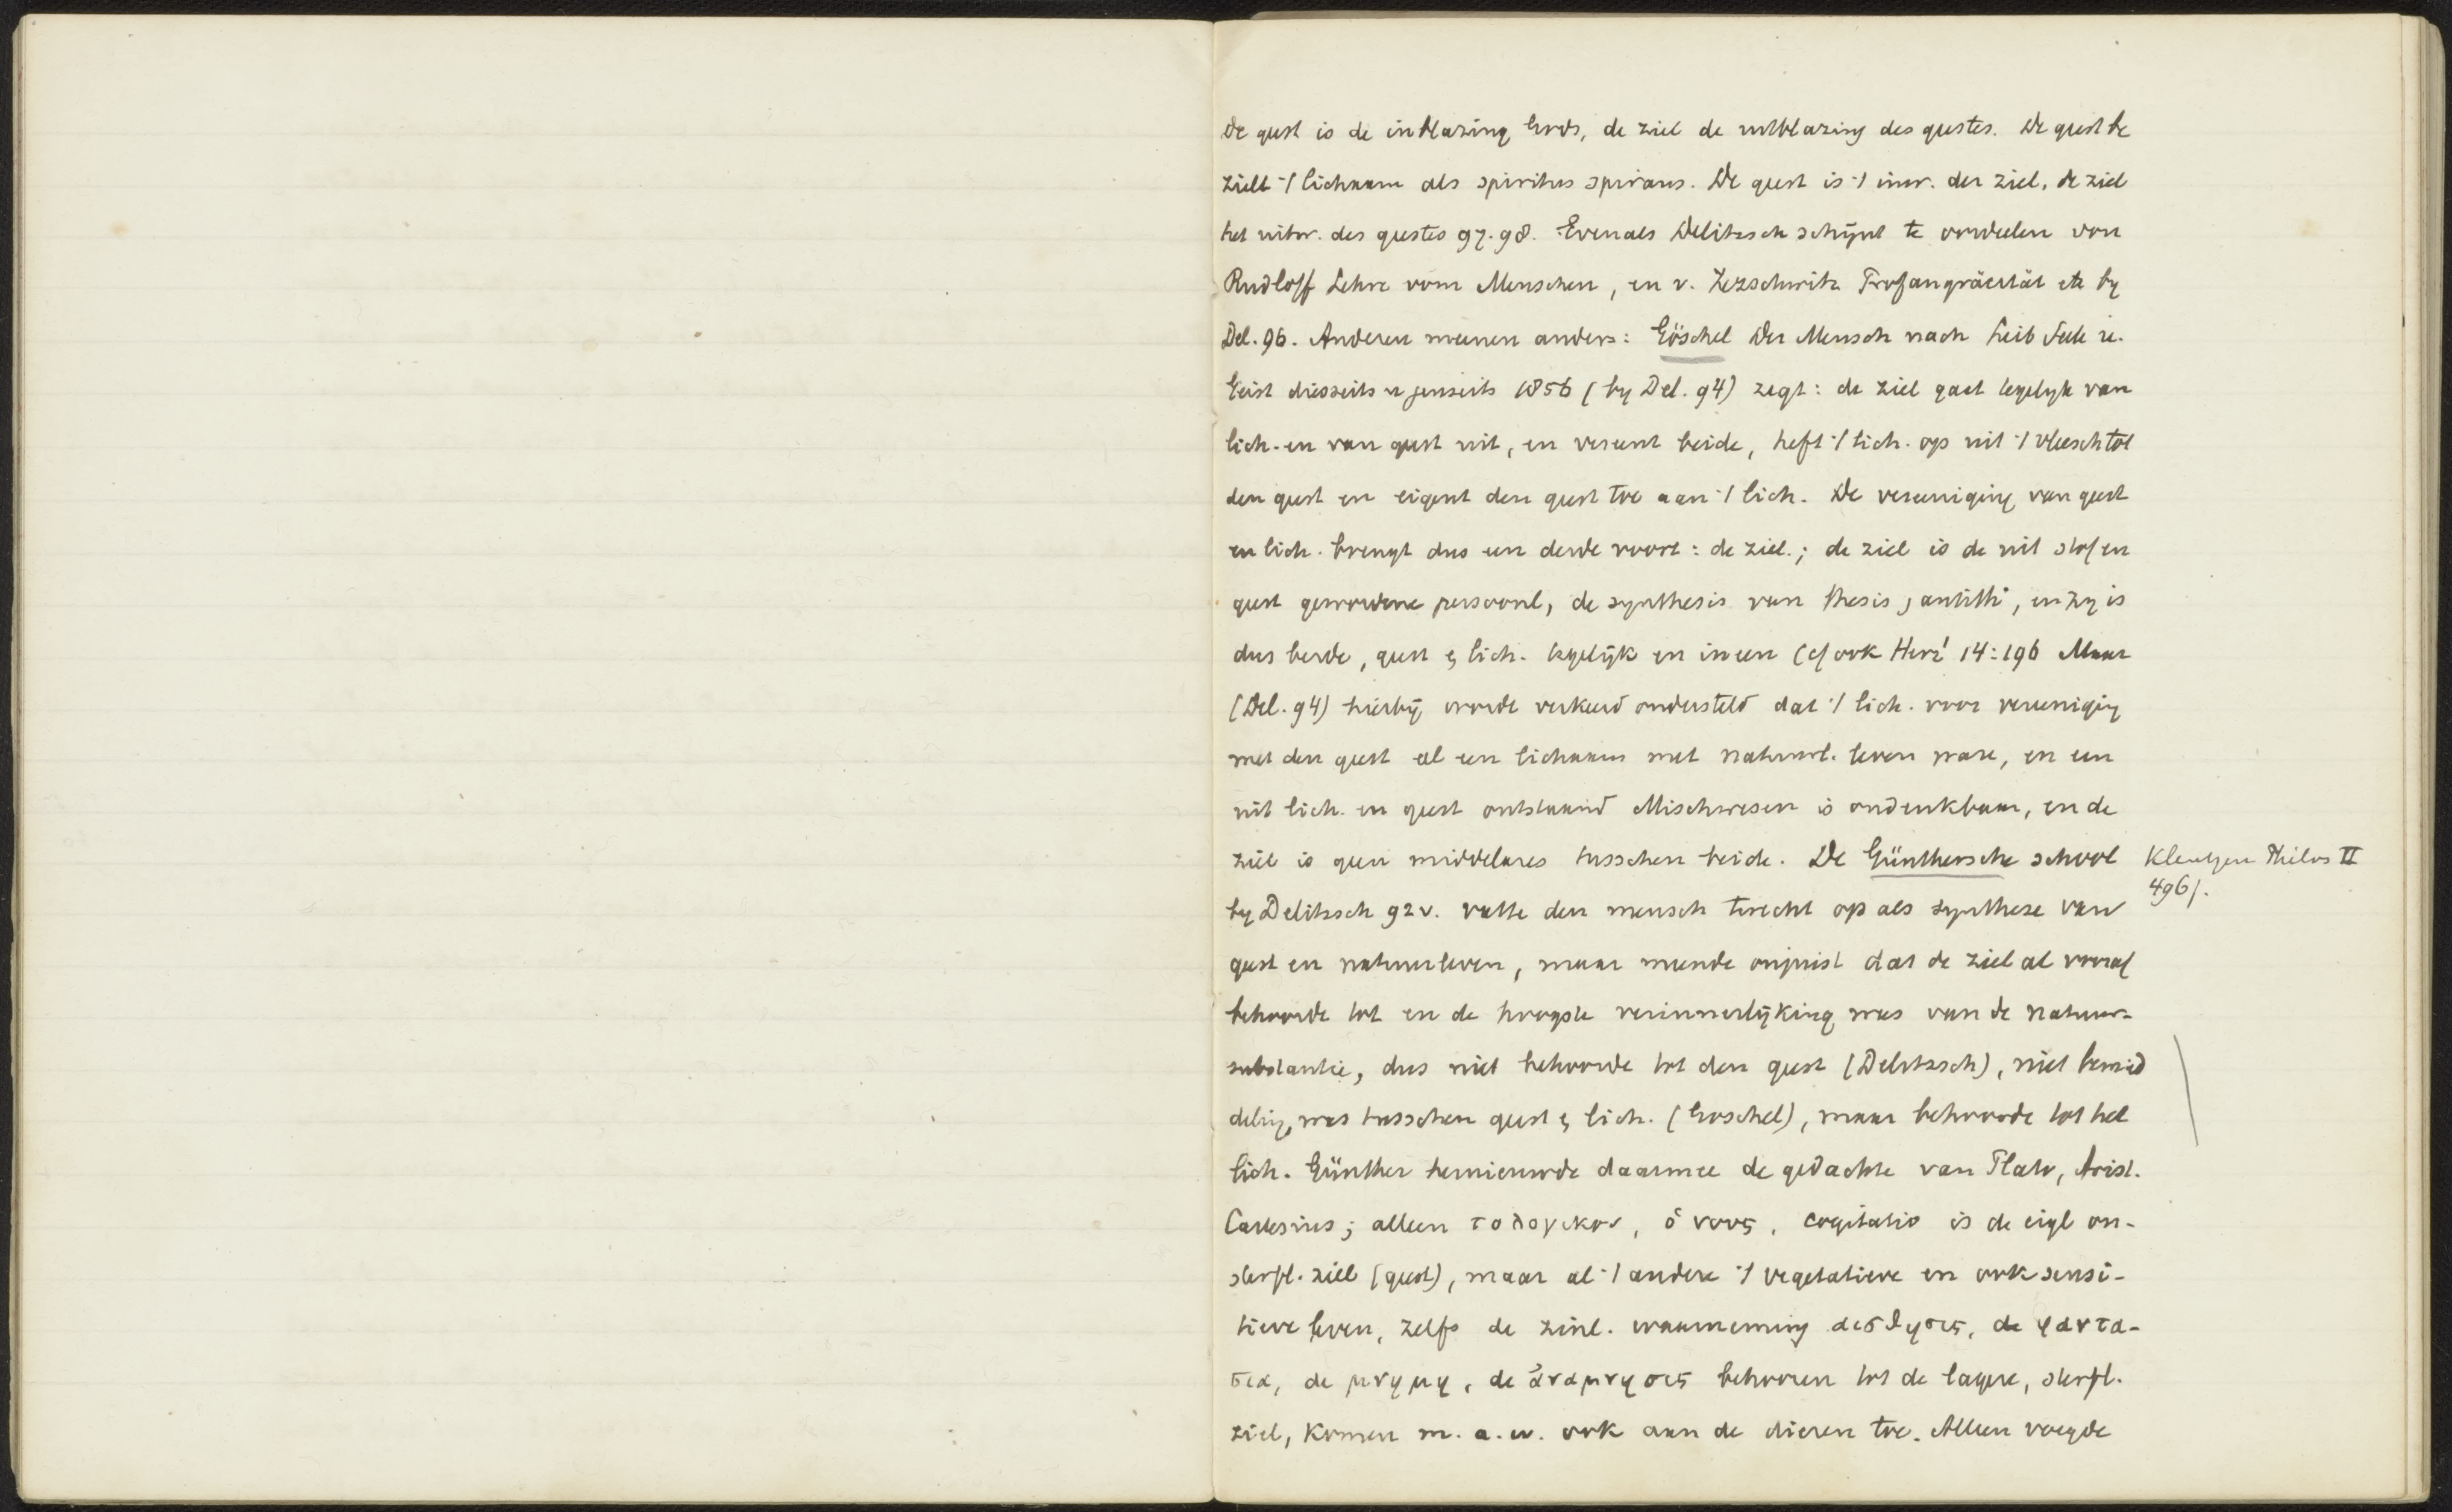 De geest is de inblazing Gods, de ziel de uitblazing des geestes. De geest be
zielt 't lichaam als spiritus spirans. De geest is 't inw. der ziel, de ziel
het uitw. des geestes 97. 98. Evenals Delitzsch schijnt te oordeelen von
Rudloff Lehre vom Menschen, en v. Zezschwitz Profangräcität etc by
Del. 96. Anderen meenen anders: Göschel Der Mensch nach Leib Seele u.
Geist diesseits u jenseits 1856 (by Del. 94) zegt: de ziel gaat tegelyk van
lich. en van geest uit, en vereent beide, heft 't lich. op uit 't vleesch tot
den geest en eigent den geest toe aan 't lich. De vereeniging van geest
en lich. brengt dus een derde voort: de ziel.; de ziel is de uit stof en
geest gewordene persoonl, de synthesis van thesis, antith., en zy is
dus beide, geest & lich. tegelijk en ineen (cf ook Herz² 14:196 Maar
(Del. 94) hierbij wordt verkeerd ondersteld dat 't lich. voor vereeniging
met den geest al een lichaam met natuurl. leven ware, en een
uit lich. en geest ontstaand Mischwesen is ondenkbaar, en de
ziel is geen middelares tusschen beide. De Günthersche school
Kleutgen Philos II
496f.
by Delitzsch 92v. vatte den mensch terecht op als synthese van
geest en natuurleven, maar meende onjuist dat de ziel al vooraf
behoorde tot en de hoogste verinnerlijking was van de natuur-
substantie, dus niet behoorde tot den geest (Delitzsch), niet bemid
deling was tusschen geest & lich. (Goschel), maar behoorde tot het
lich. Günther hernieuwde daarmee de gedachte van Plato, Arist.
Cartesius; alleen το λογικον, ὁ νους, cogitatio is de eigl on-
sterfl. ziel (geest), maar al 't andere 't vegetatieve en ook sensi-
tieve leven, zelfs de zinl. waarneming αισθησις, de φαντα-
σια, de μνημη, de ἀναμνησις behooren tot de lagere, sterfl.
ziel, komen m. a. w. ook aan de dieren toe. Alleen voegde